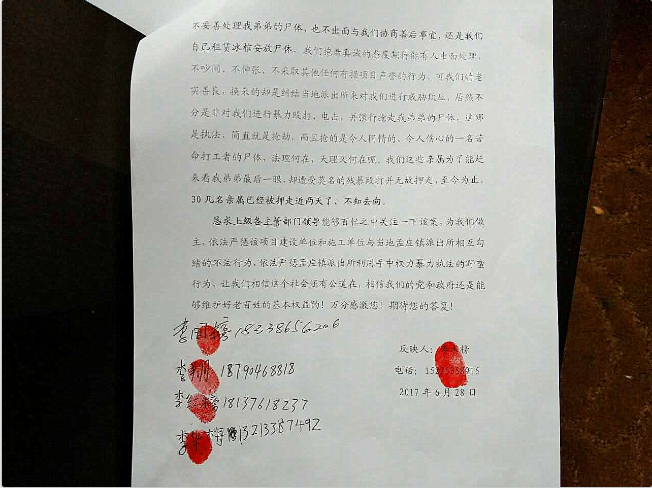 不妥善处理我弟弟的尸体，也不出面与我们协商善后事宜，还是我们
自己租赁冰棺安放尸体。我们抱着真诚的态度就行能有人出面处理，
不吵闹、不伸张、不采取其他任何有损项目声誉的行为，可我们的老
实善良，换来的却是纠结当地派出所来对我们进行威胁欺压，居然不
分是非对我们进行暴力殴打、电击，并强行抢走我弟弟的尸体。这哪
是执法，简直就是抢劫，而且抢的是令人同情的、令人伤心的一名苦
命打工者的尸体，法理何在，天理又何在呢，我们这些亲属为了能赶
来看我弟弟最后一眼，却遭受莫名的残暴殴打并无故押走，至今为止，
30 几名亲属已经被押走近两天了、不知去向。
恳求上级各主管部门领导能够百忙之中关注一下该案，为我们做
主，依法严惩该项目建设单位和施工单位与当地孟庄镇派出所相互勾
结的不法行为，依法严惩孟庄镇派出所利用手中权力暴力执法的野蛮
行为，让我们相信这个社会还有公道在，相信我们的党和政府还是能
够维护好老百姓的基本权益的！万分感激您！期待您的答复！
反映人：
电话：
18790468818
18137618237
13213387492
2017 年 6 月 28 日